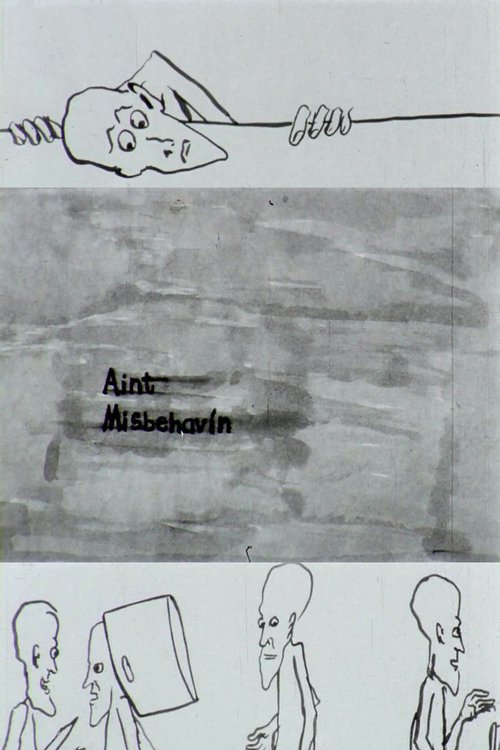 Aint
Misbehavin